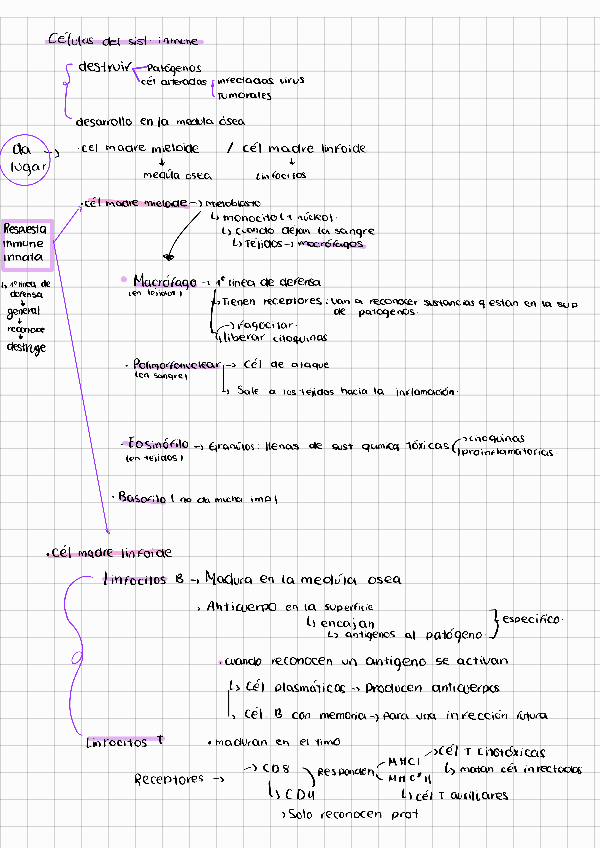 Células del sist. inmune
destruir
Patógenos
cél alteradas
infectadas virus
Tumorales
desarrollo en la medula ósea
da lugar →
· cel madre mieloide / cél madre linfoide
medula osea
Linfocitos
· cél madre mielode → mieloblasto
↳ monocito (1 núcleo).
↳ cuando dejan la sangre
↳ Tejidos → macrófagos
Respuesta
inmune
innata
↳ 1ª linea de
defensa
↓
general
↓
reconoce
↓
destruye
· Macrófago → 1ª linea de defensa
(en tejidos)
Tienen receptores: van a reconocer sustancias q estan en la sup
de patogenos.
→ Fagocitar.
liberar citoquinas
· Polimorfonuclear → cél de ataque
(en sangre)
↳ Sale a los tejidos hacia la inflamación.
· Eosinófilo → Granulos: llenas de sust quimica tóxicas
(en tejidos)
citoquinas
proinflamatorias
· Basofilo ( no da mucha imp)
· cél madre linfoide
Linfocitos B → Madura en la medúla osea
· Anticuerpo en la superficie
↳ encajan
↳ antigenos al patógeno.
especifico.
· cuando reconocen un antigeno se activan
↳ cél plasmáticas → Producen anticuerpos
↳ cél B con memoria → para una infección futura
Linfocitos T
· maduran en el timo
Receptores →
→ CD8
↳ CD4
Responden
MHC I
→ cél T citotóxicas
↳ matan cél infectadas
MHC II
↳ cél T auxiliares
> Solo reconocen prot